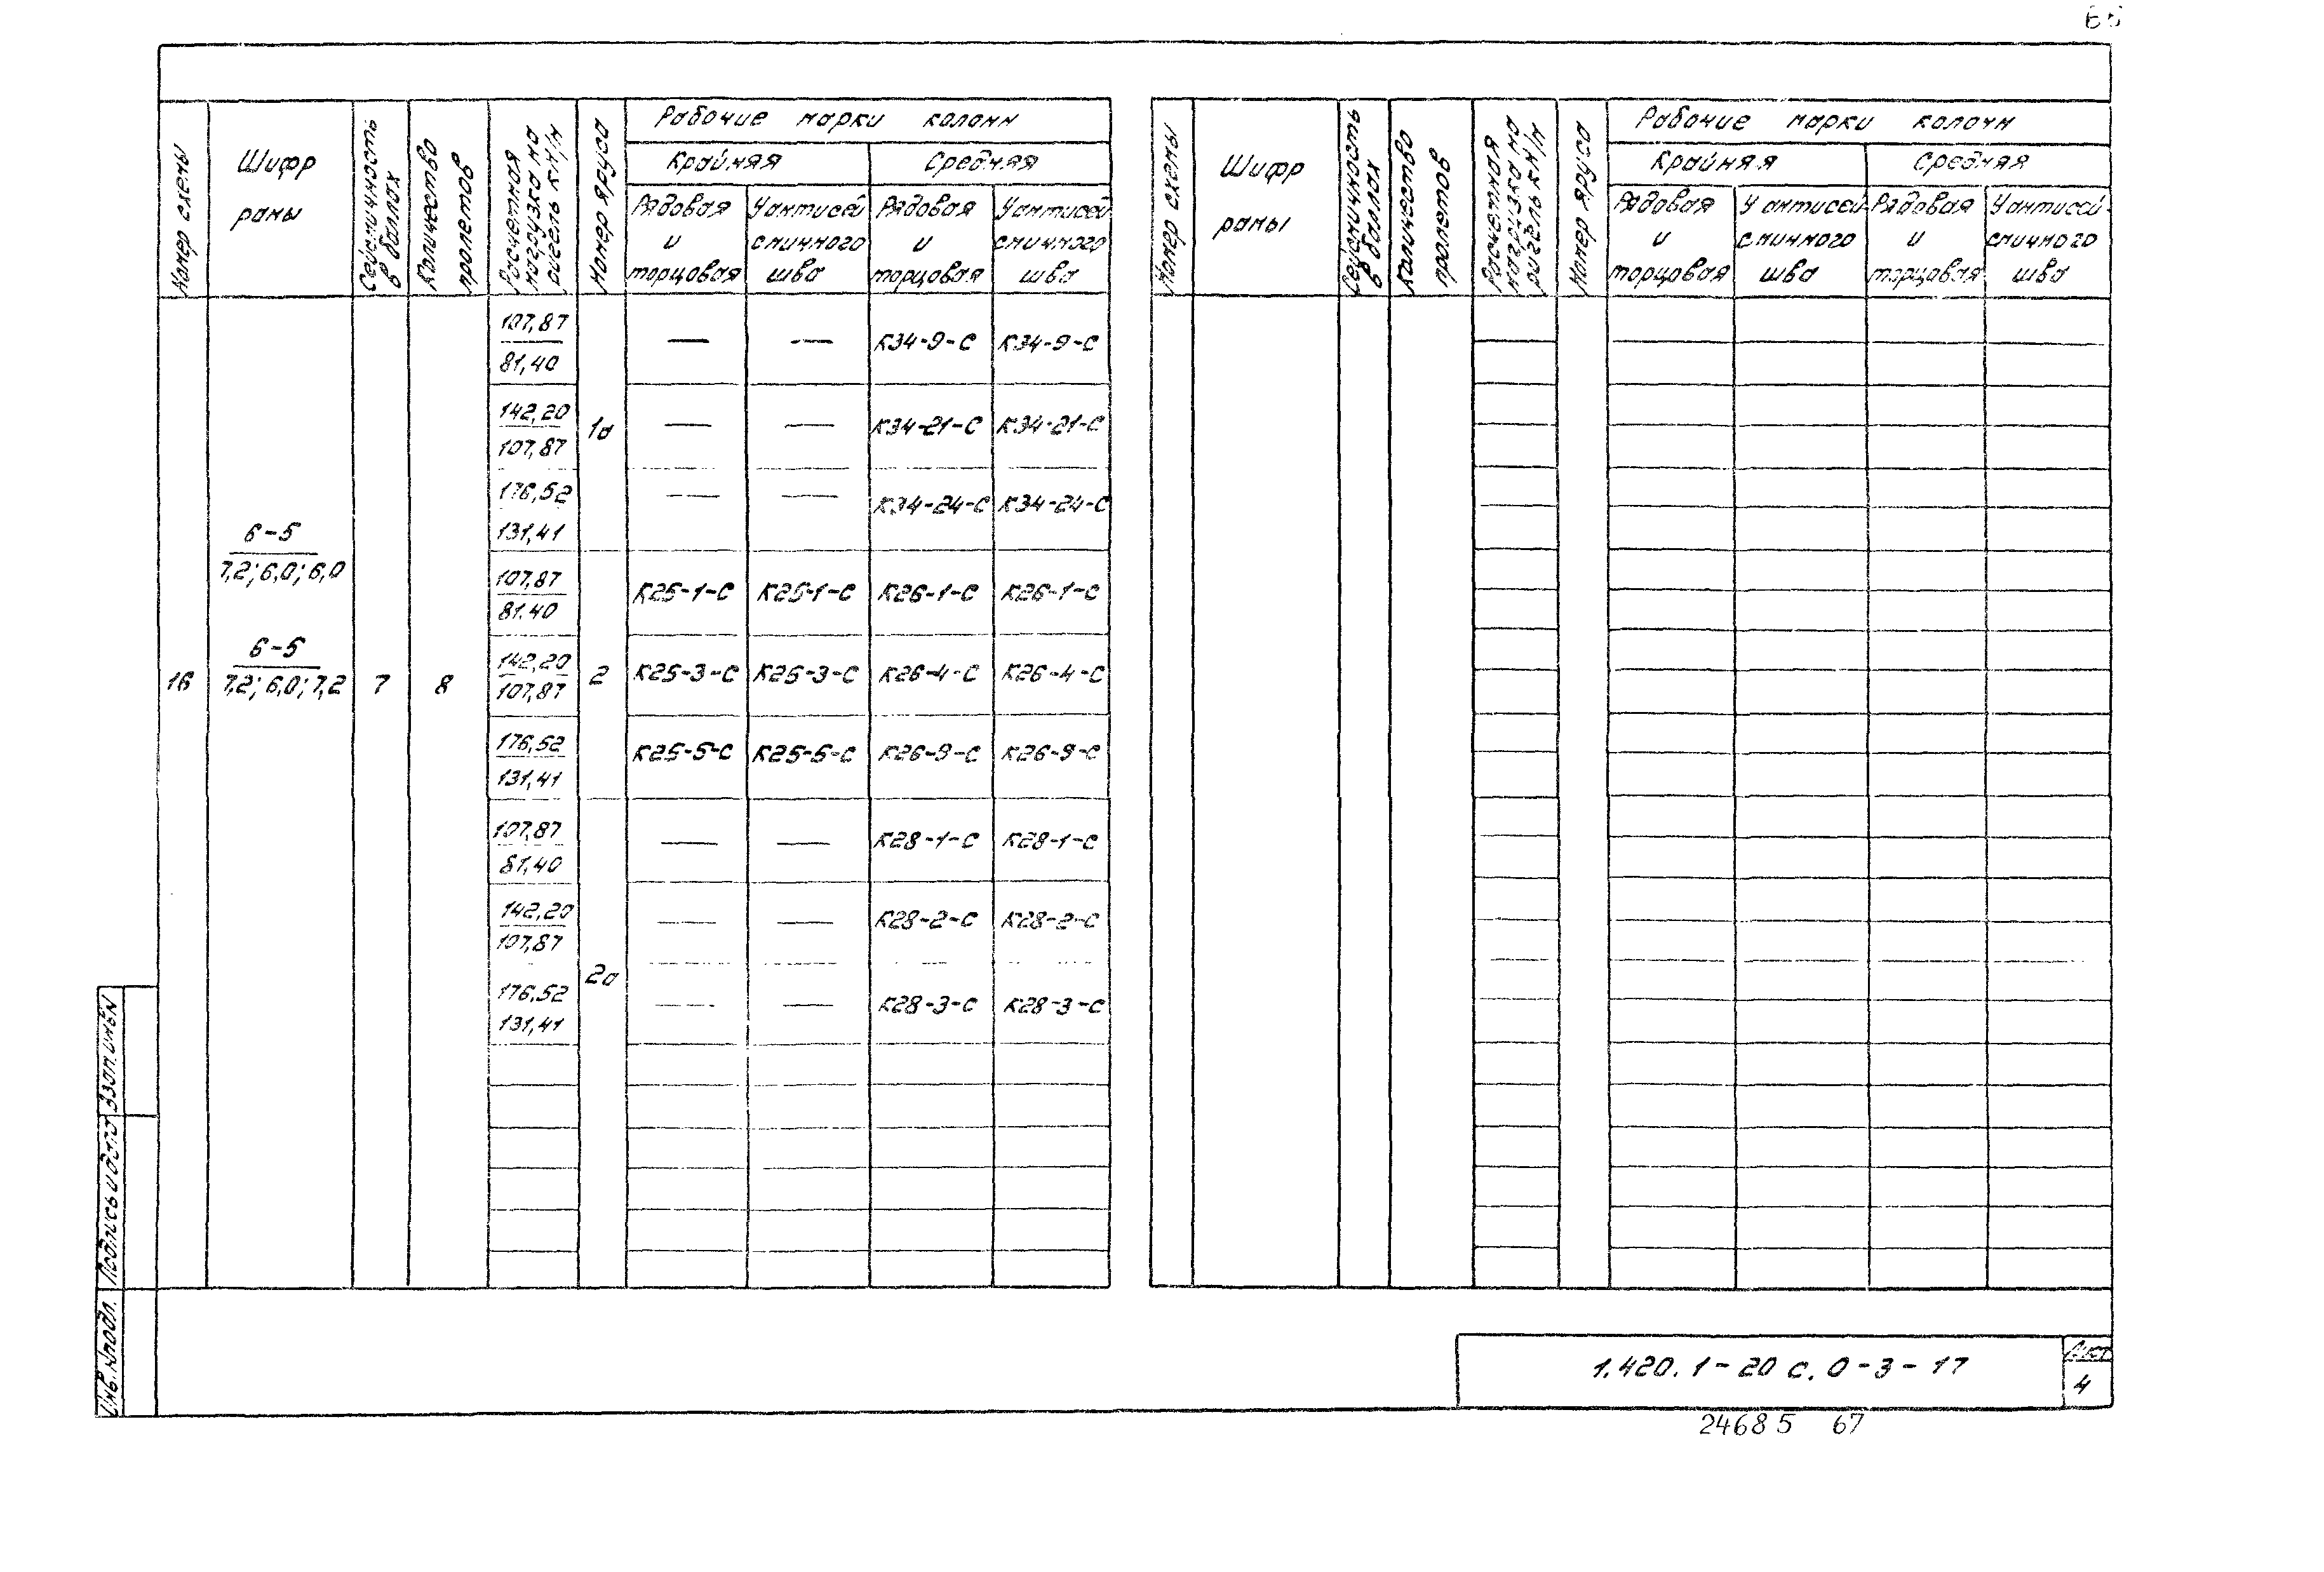 Номер схемы
Шифр
рамы
Сейсмичность
в баллах
Количество
пролетов
Расчетная
нагрузка на
ригель кН/м
Номер яруса
Рабочие марки колонн
Крайняя
Средняя
Рядовая
и
торцовая
У антисей
смичного
шва
Рядовая
и
торцовая
У антисей
смичного
шва
107,87
81,40
— — К34-9-С К34-9-С
142,20
107,87
1а
— — К34-21-С К34-21-С
176,52
131,41
— — К34-24-С К34-24-С
6-5
7,2; 6,0; 6,0
107,87
81.40
К25-1-С К25-1-С К26-1-С К26-1-С
16
6-5
7,2; 6,0; 7,2
7
8
142,20
107,87
2
К25-3-С К25-3-С К26-4-С К26-4-С
176,52
131,41
К25-5-С К25-5-С К26-9-С К26-9-С
107,87
81,40
— — К28-1-С К28-1-С
142,20
107,87
— — К28-2-С К28-2-С
2а
176,52
131,41
— — К28-3-С К28-3-С
Номер схемы
Шифр
рамы
Сейсмичность
в баллах
Количество
пролетов
Расчетная
нагрузка на
ригель кН/м
Номер яруса
Рабочие марки колонн
Крайняя
Средняя
Рядовая
и
торцовая
У антисей-
смичного
шва
Рядовая
и
торцовая
У антисей-
смичного
шва
Взам. инв N
Подпись и дата
Инв. N подл.
1.420.1-20 с. 0-3-17
Лист
4
24685 67